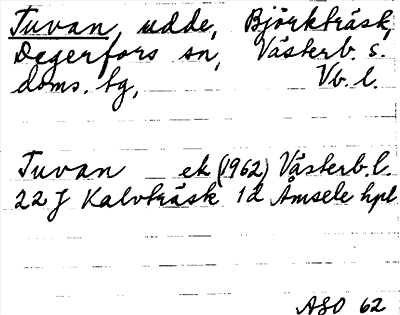 Tuvan, udde, Björkträsk,
Degerfors sn, Västerb. s.
doms. tg, Vb. l.
Tuvan ek (1962) Västerb. l.
22 J Kalvträsk 1d Åmsele hpl
ASO 62